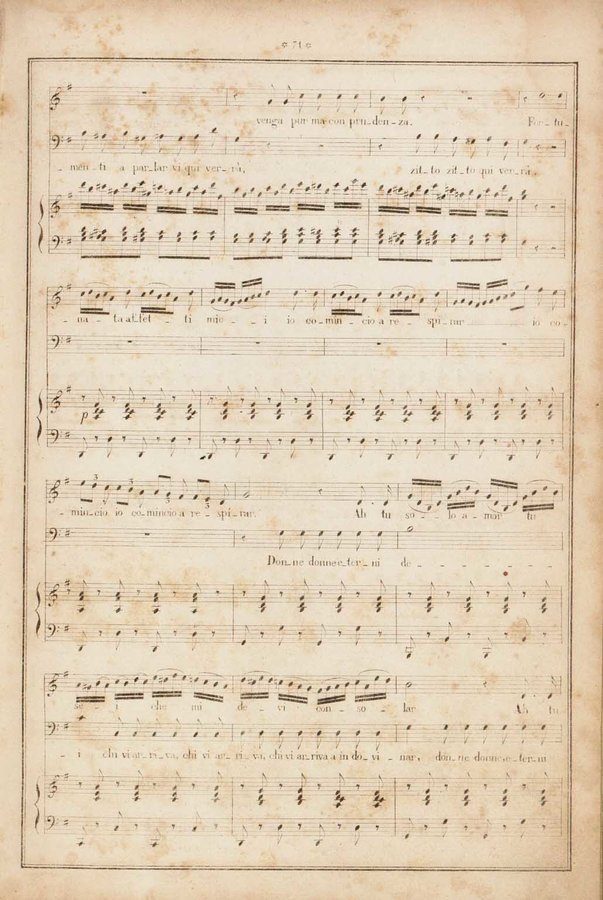 * 71 *
venga pur ma con pru_den_za. For_tu_
_men_ti a par_lar vi qui ver_rà, zit_to zit_to qui ver_rà.
_na_ta at_fet_ti mie_i io co_min_cio a re_spi_rar io co_
p
3 3 3
_min_cio, io co_mincio a re_spi_rar. Ah tu so_lo a_mor tu
Don_ne donne e_ter_ni de_
se_i che mi de_vi con_so_lar Ah tu
_i chi vi ar_ri_va, chi vi ar_ri_va, chi vi ar_riva a in do_vi_nar, don_ne donne, e_ter_ni